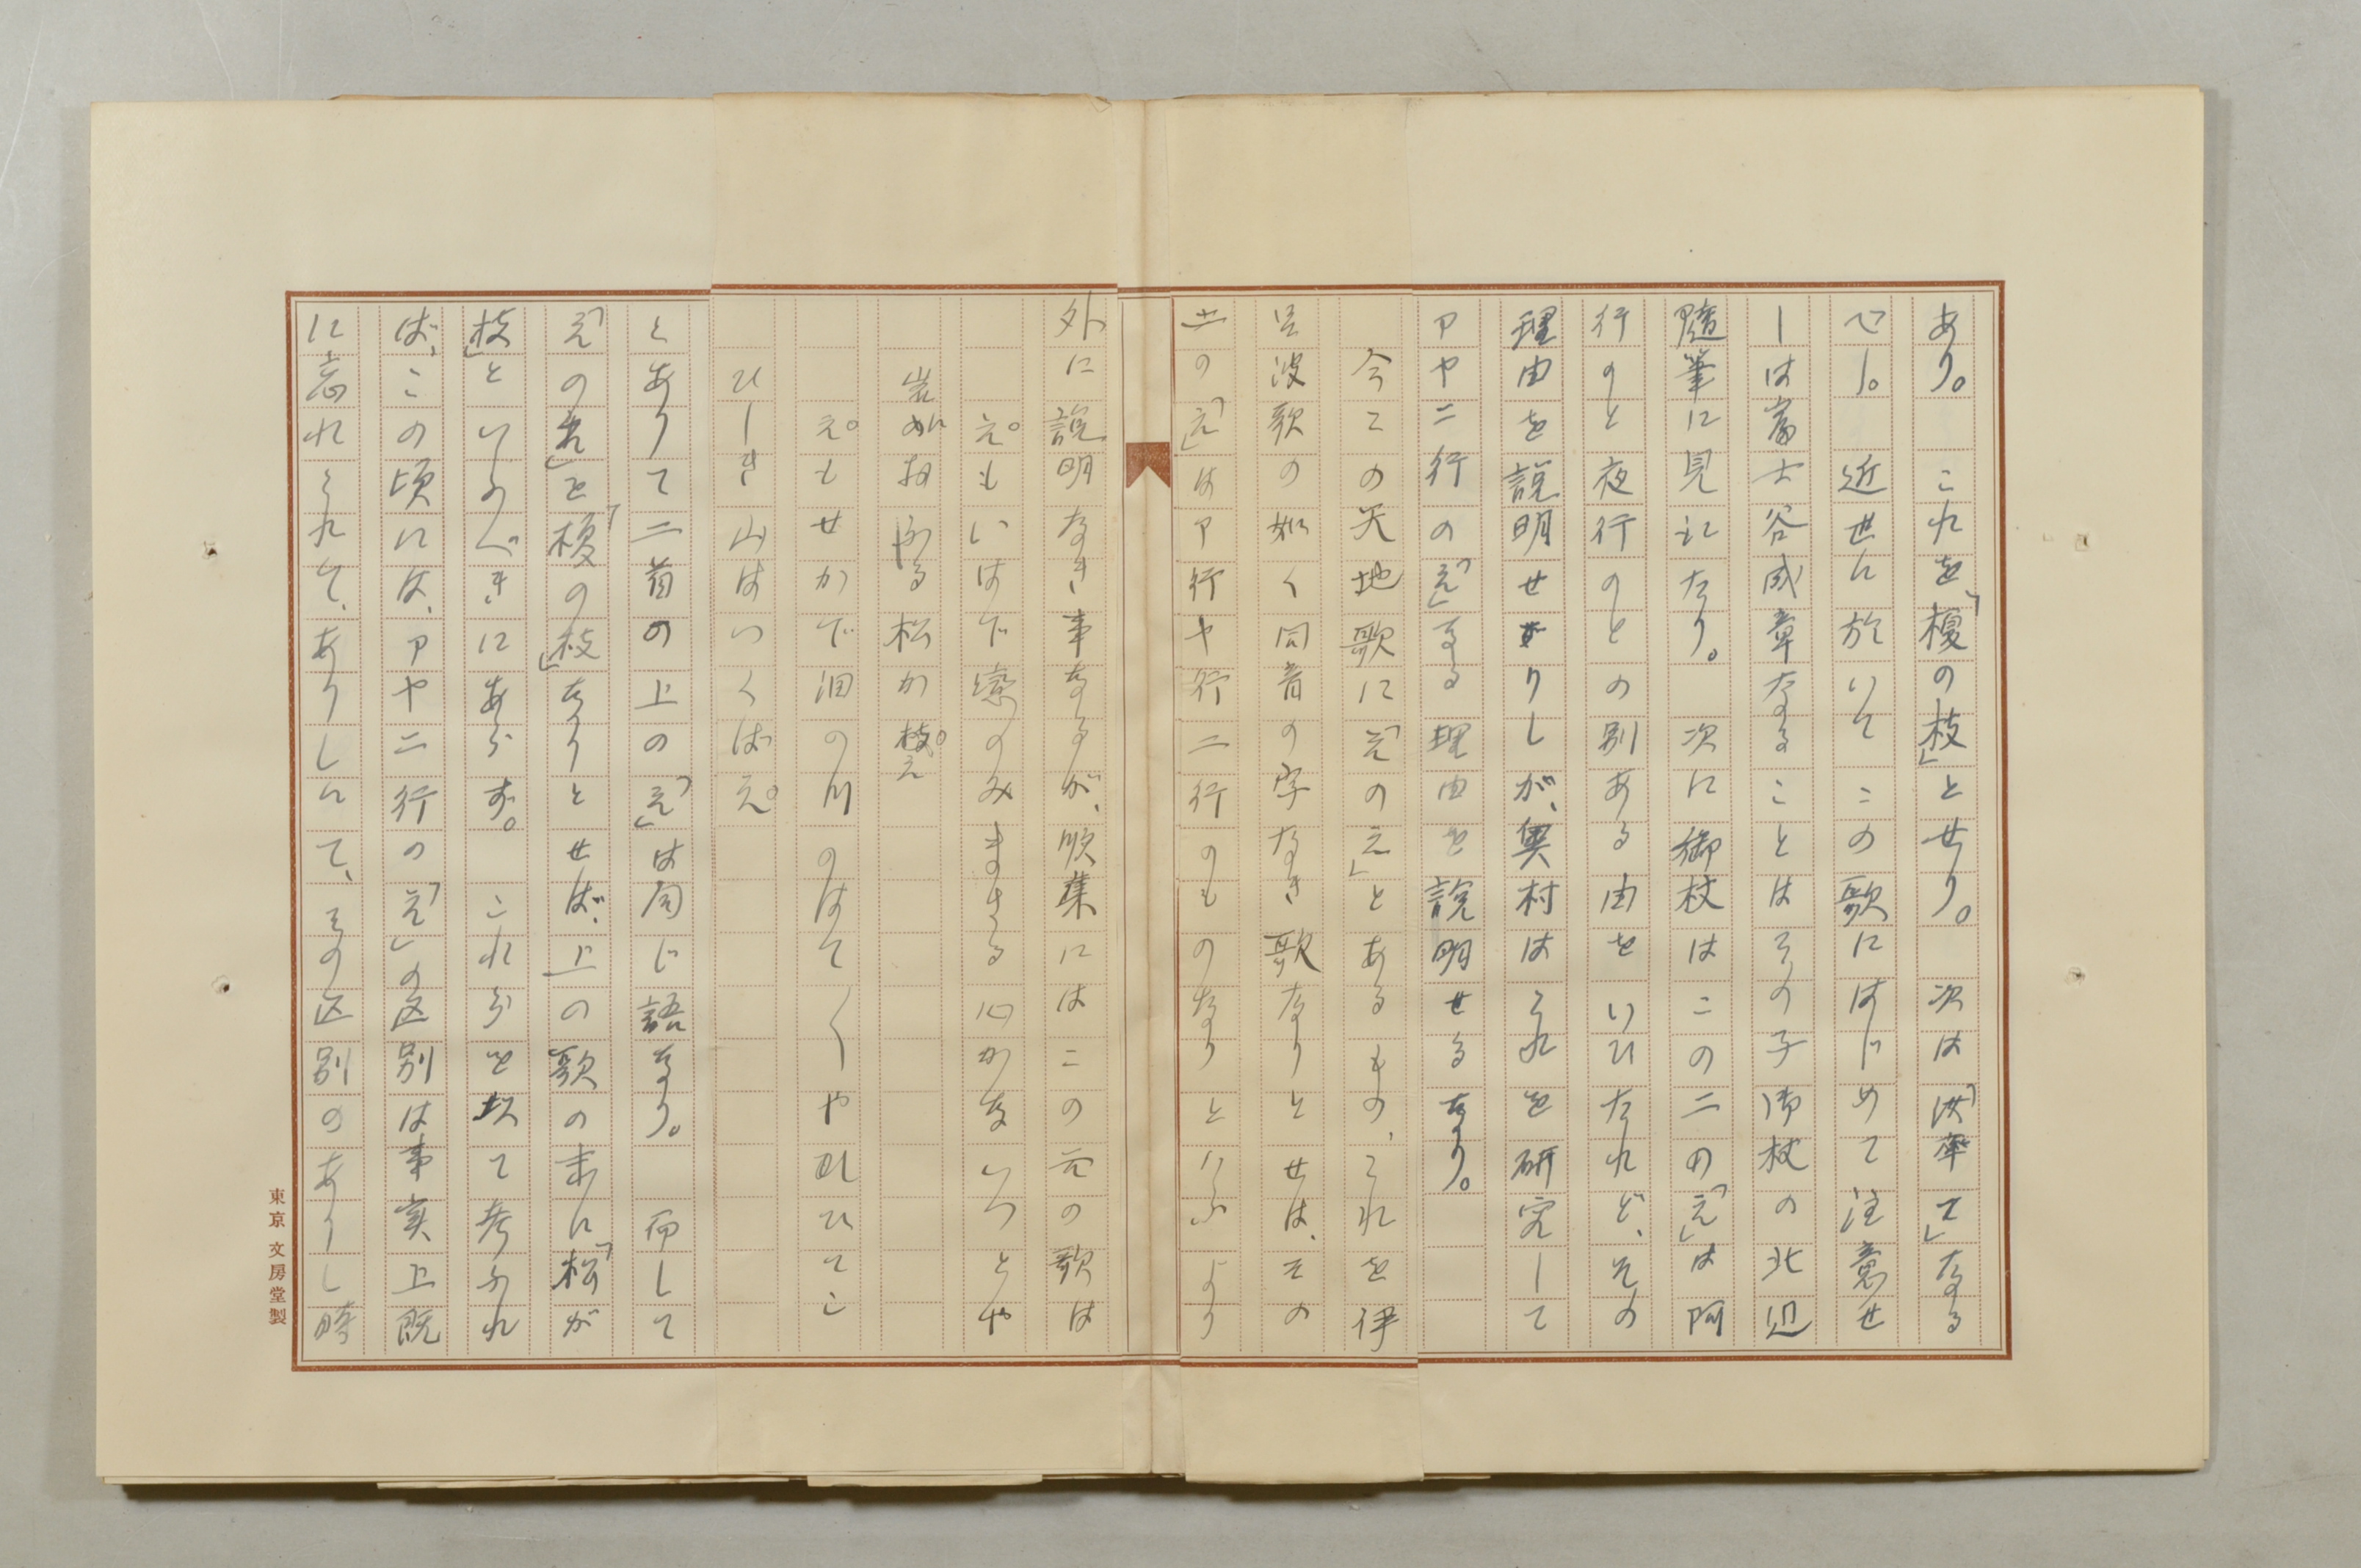 あり。　これを「榎の枝」とせり。　次は「洪率士」なる
べし。　近世に於いてこの歌にはじめて注意せ
しは富士谷成章なることはその子御杖の北辺
隨筆に見えたり。　次に御杖はこの二の「え」は阿
行のと夜行のとの別ある由をいひたれど、その
理由を説明せざりしが、奥村はこれを研究して
アヤ二行の「え」なる理由を説明せるなり。
今この天地歌に「えのえ」とあるもの、これを伊
呂波歌の如く同音の字なき歌なりとせば、その
二の「え」はア行ヤ行二行のものなりといふより
外に説明なき事なるが、順集にはこの元の歌は
え。もいはで戀のみまさる心かないつとや
岩におふる松か枝。え
え。もせかで泪の川のはて〱やしひてこ
ひしき山はつくばえ。
とありて二首の上の「え」は同じ語なり。　而して
「えのえ」を「榎の枝」なりとせば、上の歌の末に「松が
枝」といふべきにあらず。　これらを以て考ふれ
ば、この頃には、アヤ二行の「え」の区別は事実上既
に忘れられて、ありしにて、その区別のありし時
東京 文房堂製